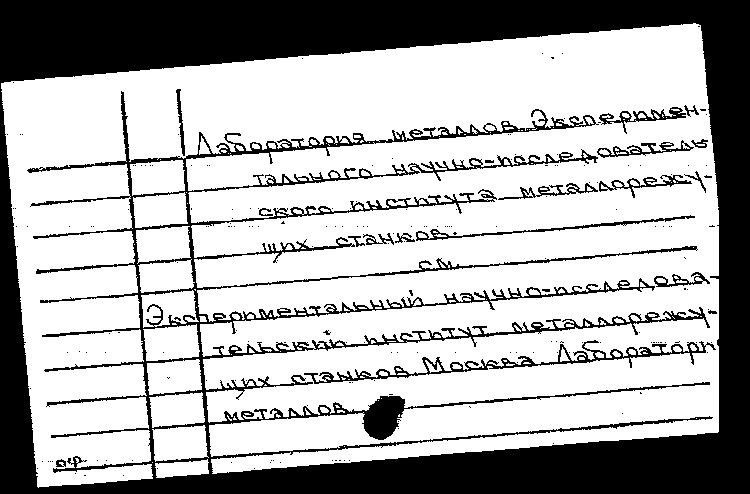 Лаборатория металлов Эксперимен-
тального научно-исследователь
ского института металлорежу-
щих станков.
см.
Экспериментальный научно-исследова-
тельский институт металлорежу-
щих станков. Москва. Лаборатори
металлов.